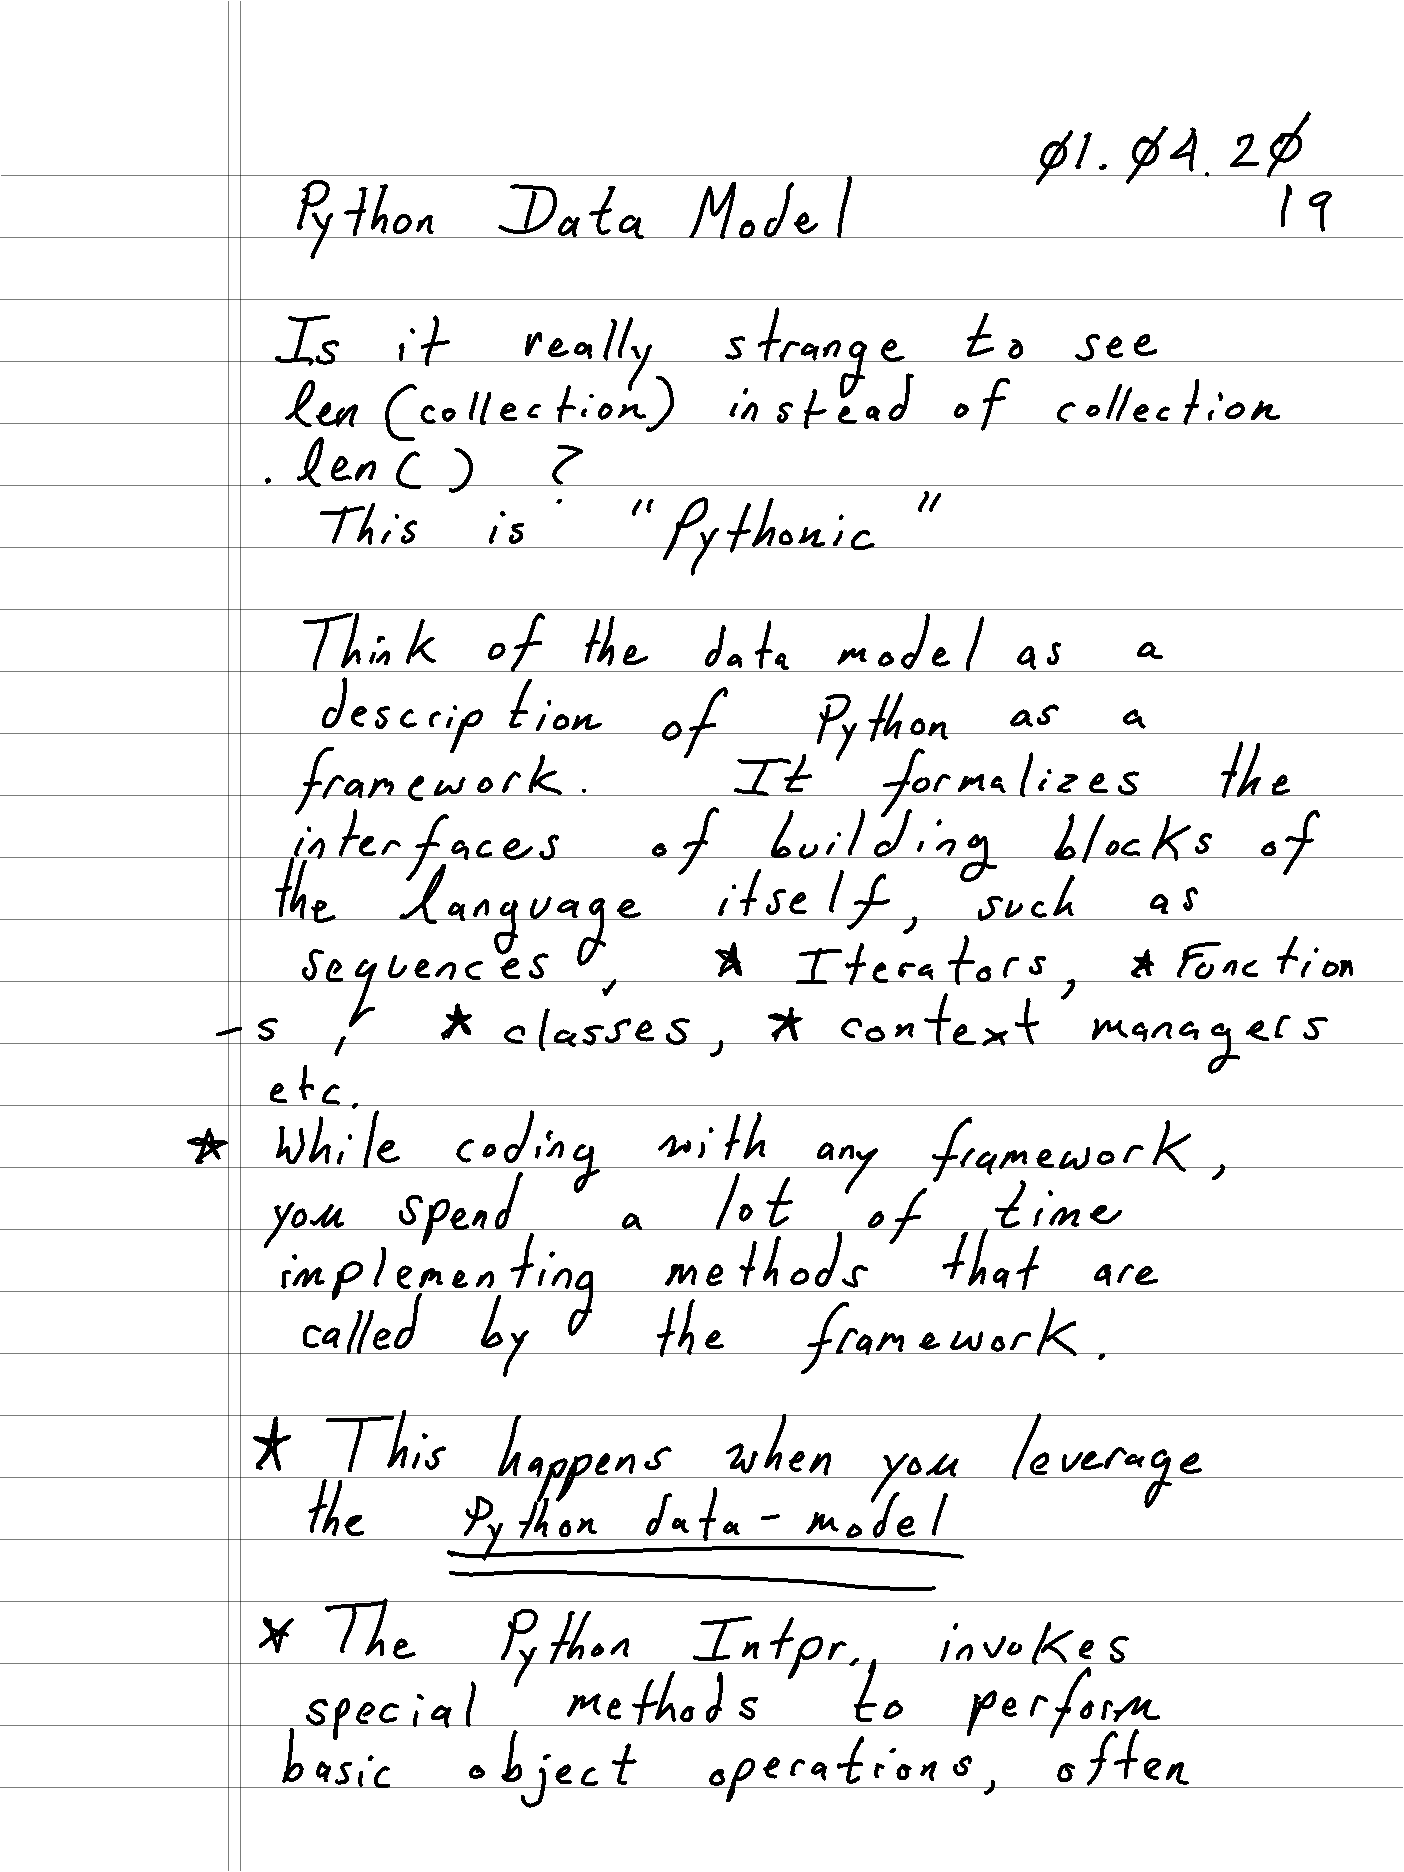 01.04.20
19
Python Data Model
Is it really strange to see
len (collection) instead of collection
.len() ?
This is "Pythonic"
Think of the data model as a
description of Python as a
framework. It formalizes the
interfaces of building blocks of
the language itself, such as
sequences, * Iterators, * Function
-s, * classes, * context managers
etc.
* While coding with any framework,
you spend a lot of time
implementing methods that are
called by the framework.
* This happens when you leverage
the Python data-model
* The Python Intpr., invokes
special methods to perform
basic object operations, often